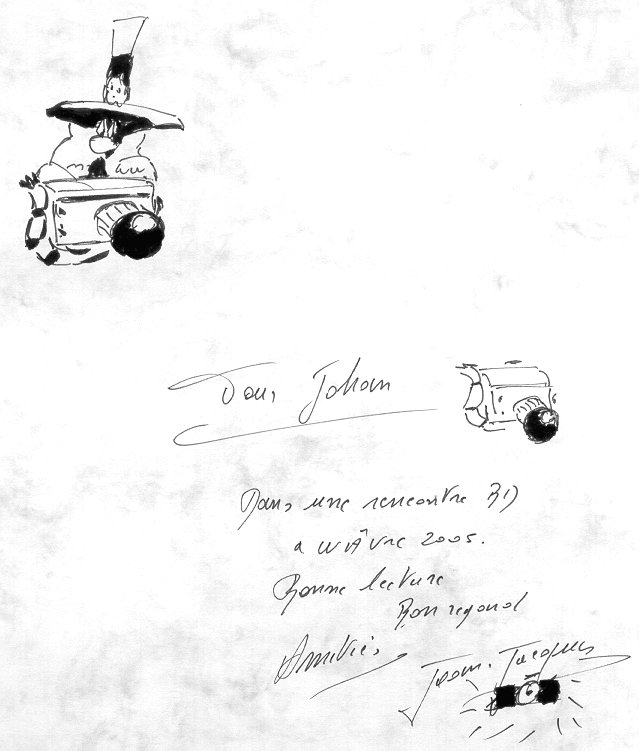 Pour Johan
Dans une rencontre BD
a wâvre 2005.
Bonne lecture
Bon regard
Amitiés
Jean-Jacques